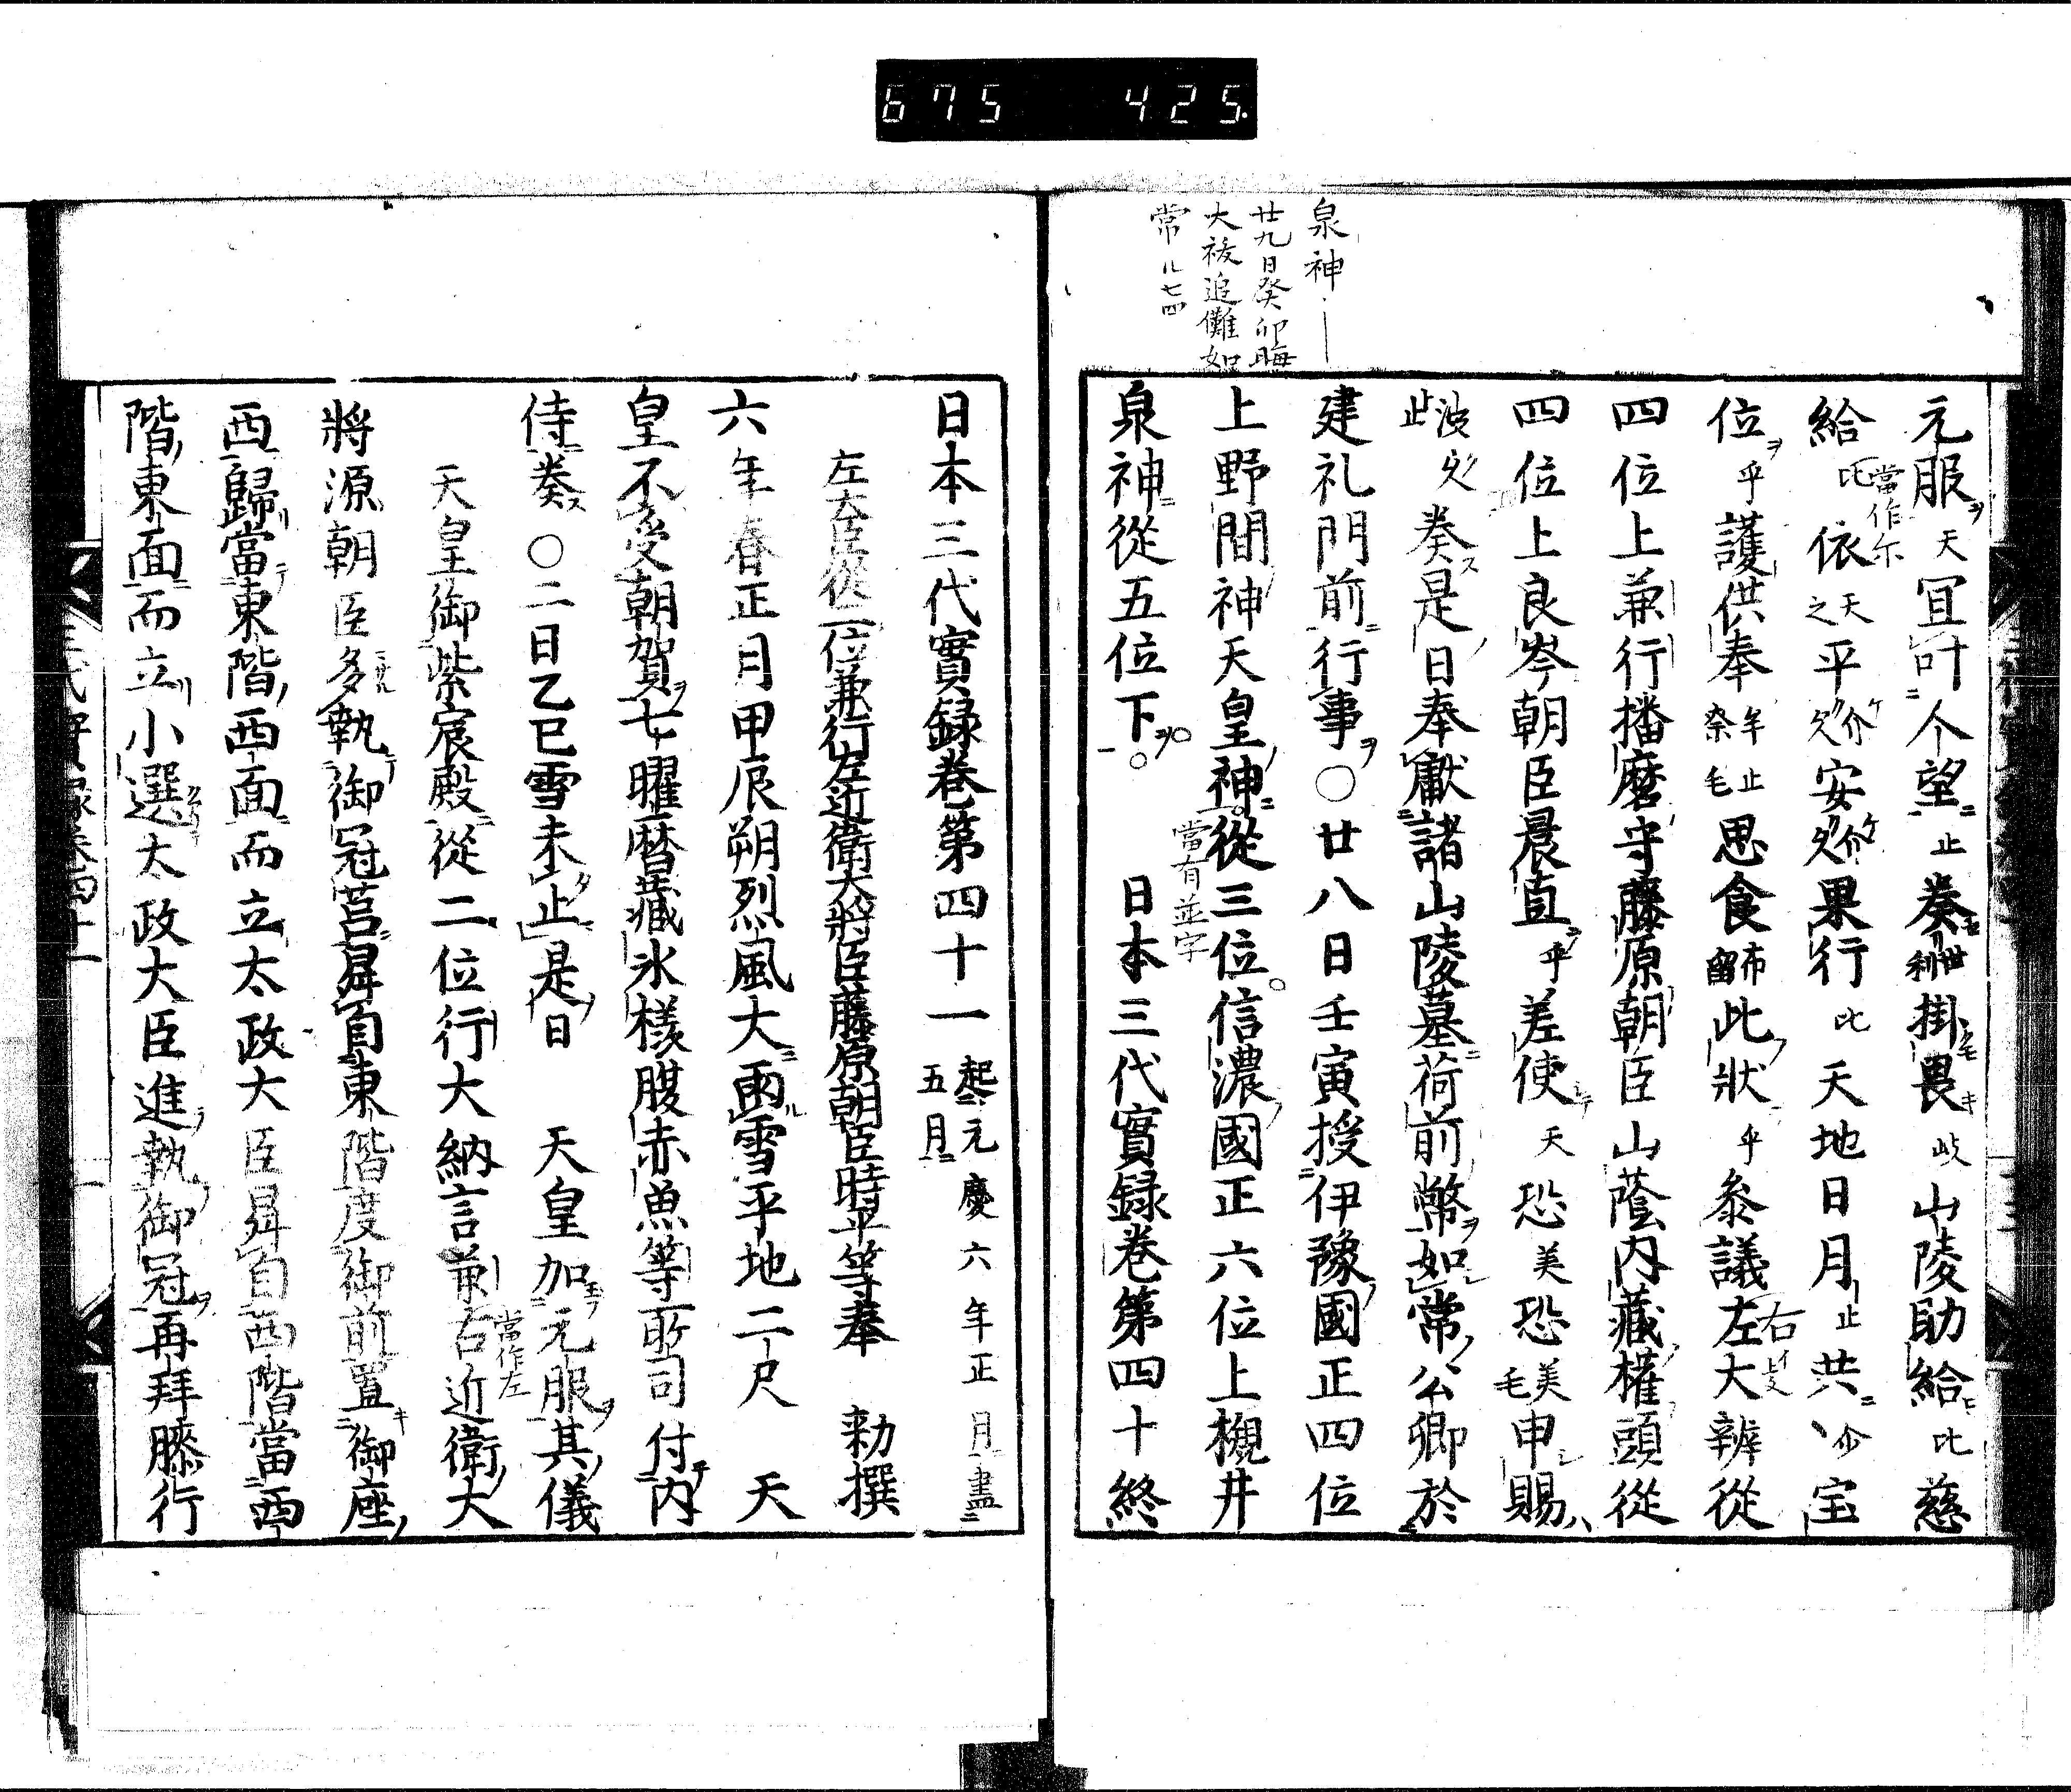 675 425.
泉神
廿九日癸卯晦
大祓追儺如
常ル七四
元服天冝叶人望止奏世利掛畏岐山陵助給比慈
給比依天之平介久安介久果行比天地日月止共尓宝
當作尓
位乎護供奉牟止奈毛思食布留此狀乎叅議左大辨從
四位上兼行播磨守藤原朝臣山蔭内藏權頭從
四位上良岑朝臣晨直乎差使天恐美恐美毛申賜
波久止奏是日奉獻諸山陵墓荷前幣如常公卿於
建礼門前行事〇廿八日壬寅授伊豫國正四位
上野間神天皇神從三位信濃國正六位上槻井
當有並字
泉神從五位下 日本三代實録巻第四十終
日本三代實録巻第四十一起元慶六年正月盡五月
左大臣從二位兼行左近衛大將臣藤原朝臣時平等奉 勅撰
六年春正月甲辰朔烈風大雨雪平地二尺 天
皇不受朝賀七曜暦藏氷樣腹赤魚等所司付内
侍奏〇二日乙巳雪未止是日 天皇加元服其儀
天皇御紫宸殿從二位行大納言兼右近衛大
當作左
將源朝臣多執御冠莒昇自東階度御前置御座
西歸當東階西面而立太政大臣昇自西階當西
階東面而立小選太政大臣進執御冠再拜膝行